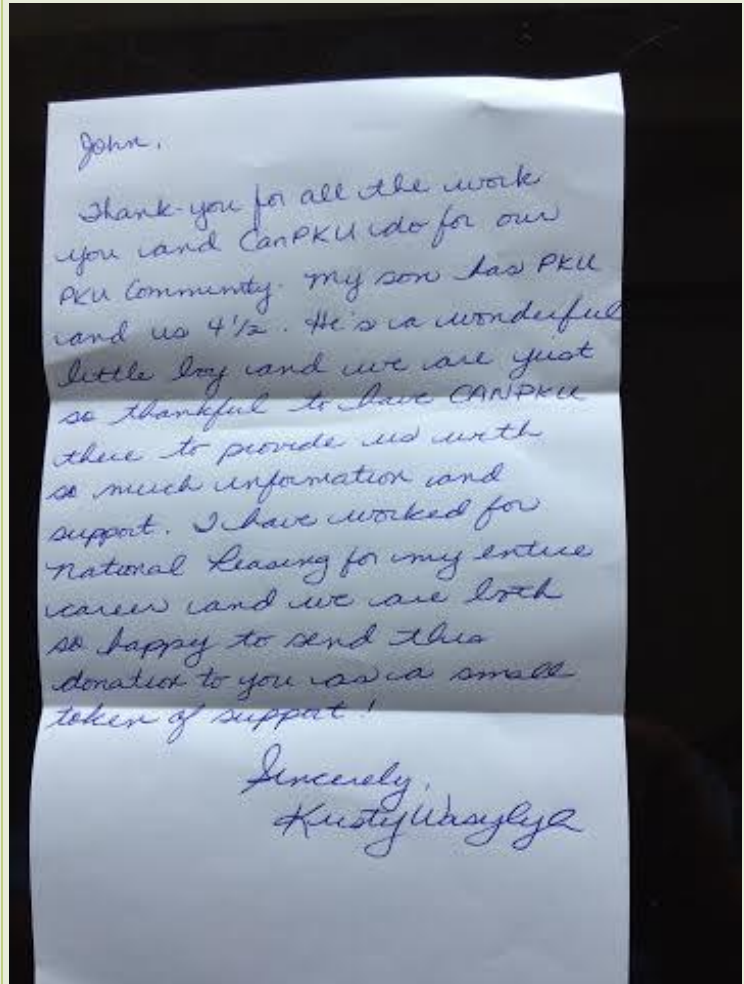 John,
Thank-you for all the work
you and CanPKU do for our
PKU Community. My son has PKU
and is 4 1/2. He's a wonderful
little boy and we are just
so thankful to have CANPKU
there to provide us with
so much information and
support. I have worked for
National Leasing for my entire
career and we are both
so happy to send this
donation to you as a small
token of support!
Sincerely,
Kristy